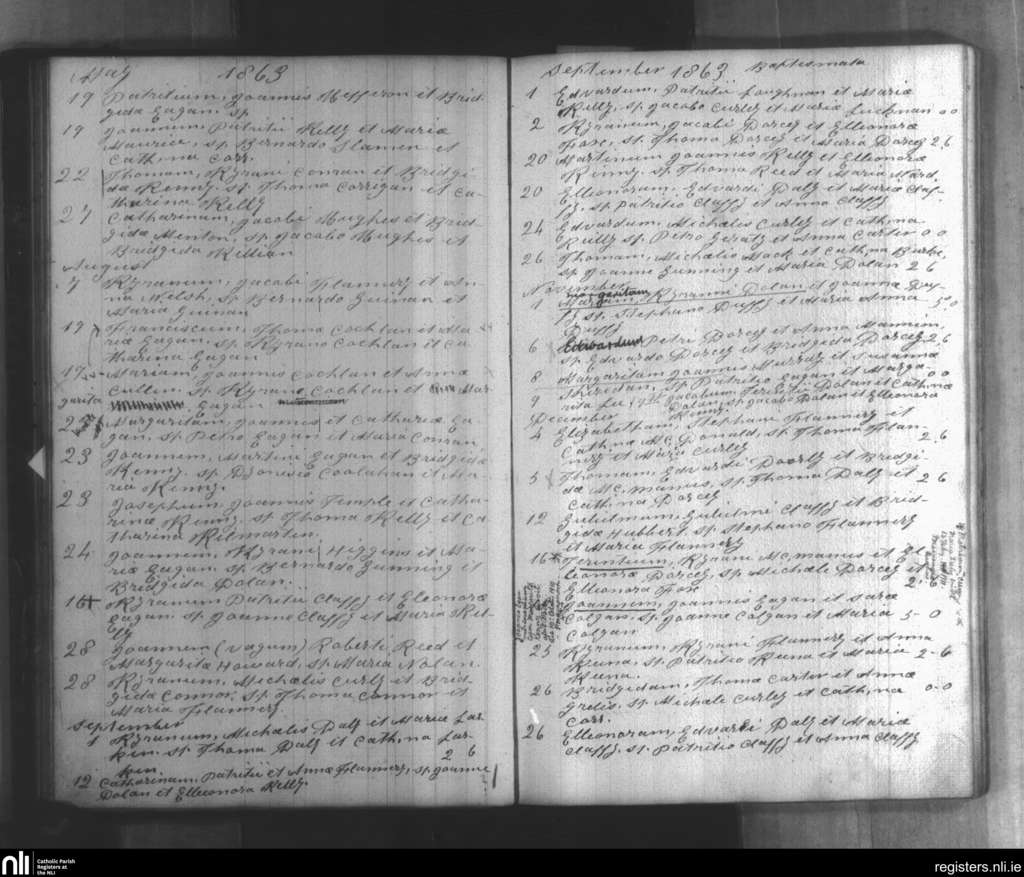 May 1863
19 Patritium, Joannis Hefferon et Brid-
gida Eagan. Sp
19 Joannem, Patritii Kelly et Mariæ
Maurice, Sp. Bernardo Slamen et
Cath,na Corr.
22 Thomam, Kyrani Conran et Bridgi-
da Kenny. Sp. Thoma Corrigan et Ca-
tharina Kelly
27 Catharinam, Jacobi Hughes et Brid-
gidæ Menton, Sp. Jacobo Hughes et
Bridgida Killian
August
7 Kyranum, Jacobi Flannery et An-
na, Welsh, Sp. Bernardo Guinan et
Maria Guinan
17 Franciscum, Thoma Coghlan et Ma-
riæ Eagan. Sp. Kyrano Coghlan et Ca-
tharina Eagan
17 Mariam, Joannis Coghlan et Annæ
Cullen, Sp. Kyrano Coghlan et Mar-
garita Eagan
Margaritam, Joannis et Cathariæ Ea-
gan, Sp. Petro Eagan et Maria Conran
23 Joannem, Martini Eagan et Bridgidæ
Kenny. Sp. Dionisio Coolahan et Ma-
ria Kenny.
23 Josephum, Joannis Temple et Catha-
rinæ Kenny. Sp. Thoma Kelly et Ca-
tharina Kilmartin.
24 Joannem, Kyrani Higgins et Ma-
riæ Eagan. Sp. Bernardo Gunning et
Bridgida Dolan.
16 Kyranum Patritii Claffy et Eleonoræ
Eagan. Sp. Joanne Claffy et Maria Kel-
ly
28 Joannem (Vagum) Roberti Reed et
Margarita Howard, Sp. Maria Nolan.
28 Kyranum, Michælis Curly et Brid-
gida Connor. Sp. Thoma Connor et
Maria Flannery.
September
1 Kyranum, Michalis Daly et Mariæ Lar-
kin. Sp. Thoma Daly et Cath,na Lar-
kin. 2 6
12 Catharinam, Patritii et Annæ Flannery, Sp. Joanne
Dolan et Elleonora Kelly.
September 1863 Baptismata
1 Edvardum, Patritii Loughnan et Mariæ
Kelly, Sp. Jacobo Curley et Maria Luchnan 0 0
2 Kyranum, Jacobi Dorcey et Elleonoræ
Fox, Sp. Thoma Dorcey et Maria Dorcey 2 6
20 Martinum Joannis Kelly et Elleonoræ
Kenny. Sp. Thoma Reed et Maria Ward.
20 Elleonoram. Edvardi Daly et Mariæ Claf-
fy, Sp. Patritio Claffy et Anna Claffy
24 Edvardum, Michalis Curley et Cath,na
Kelly Sp. Petro Geraty et Anna Carter 0 0
26 Thomam, Michalis Mack et Cath,na Burke,
Sp. Joanne Gunning et Maria Dolan 2 6
November
margaritam
1 Kyranni Dolan et Joanna Duf-
fy Sp. Stephano Duffy et Maria Anna
Duffy 5 0
6 Edwardum Petri Dorcey et Anna Mannion,
Sp. Edvardo Dorcey et Bridgida Dorcey 2 6
8 Margaritam Joannis Murray et Susannæ
Sp. Patritio Eagan et Marga-
rita Lee, 0 0
9 Jacobum Terentii Dolan et Cath,næ
Dolan, Sp. Jacobo Dolan et Elleonora
Kenny.
December
4 Elizabetham, Stephani Flannery et
Cath,næ Mc,Donald, Sp. Thoma Flan-
nery et Maria Curley 2 6
5 Thomam, Edvardi Doorly et Bridgi-
dæ Mc,manus, Sp. Thoma Daly et
Cath,na Dorcey 2 6
12 Gulielmum, Gulielmi Claffy et Brid-
gidæ Hubbert, Sp. Stephano Flannery
et Maria Flannery
16 Terentium, Kyrani Mc,manus et El-
leonoræ Dorcey, Sp. Michale Dorcey et
Elleonora Fox
Joannem, Joannis Eagan et Saræ
Colgan, Sp. Joanne Colgan et Maria
Colgan 5-0
25 Kyranum, Kyrani Flannery et Anna
Keena, Sp. Patritio Keena et Maria
Keena. 2-6
26 Bridgidam, Thomæ Carter et Annæ
Sp. Michale Curley et Cath,na
Corr. 0-0
26 Elleonoram, Edvardi Daly et Mariæ
Claffy, Sp. Patritio Claffy et Anna Claffy
nli
Catholic Parish
Registers at
the NLI
registers.nli.ie